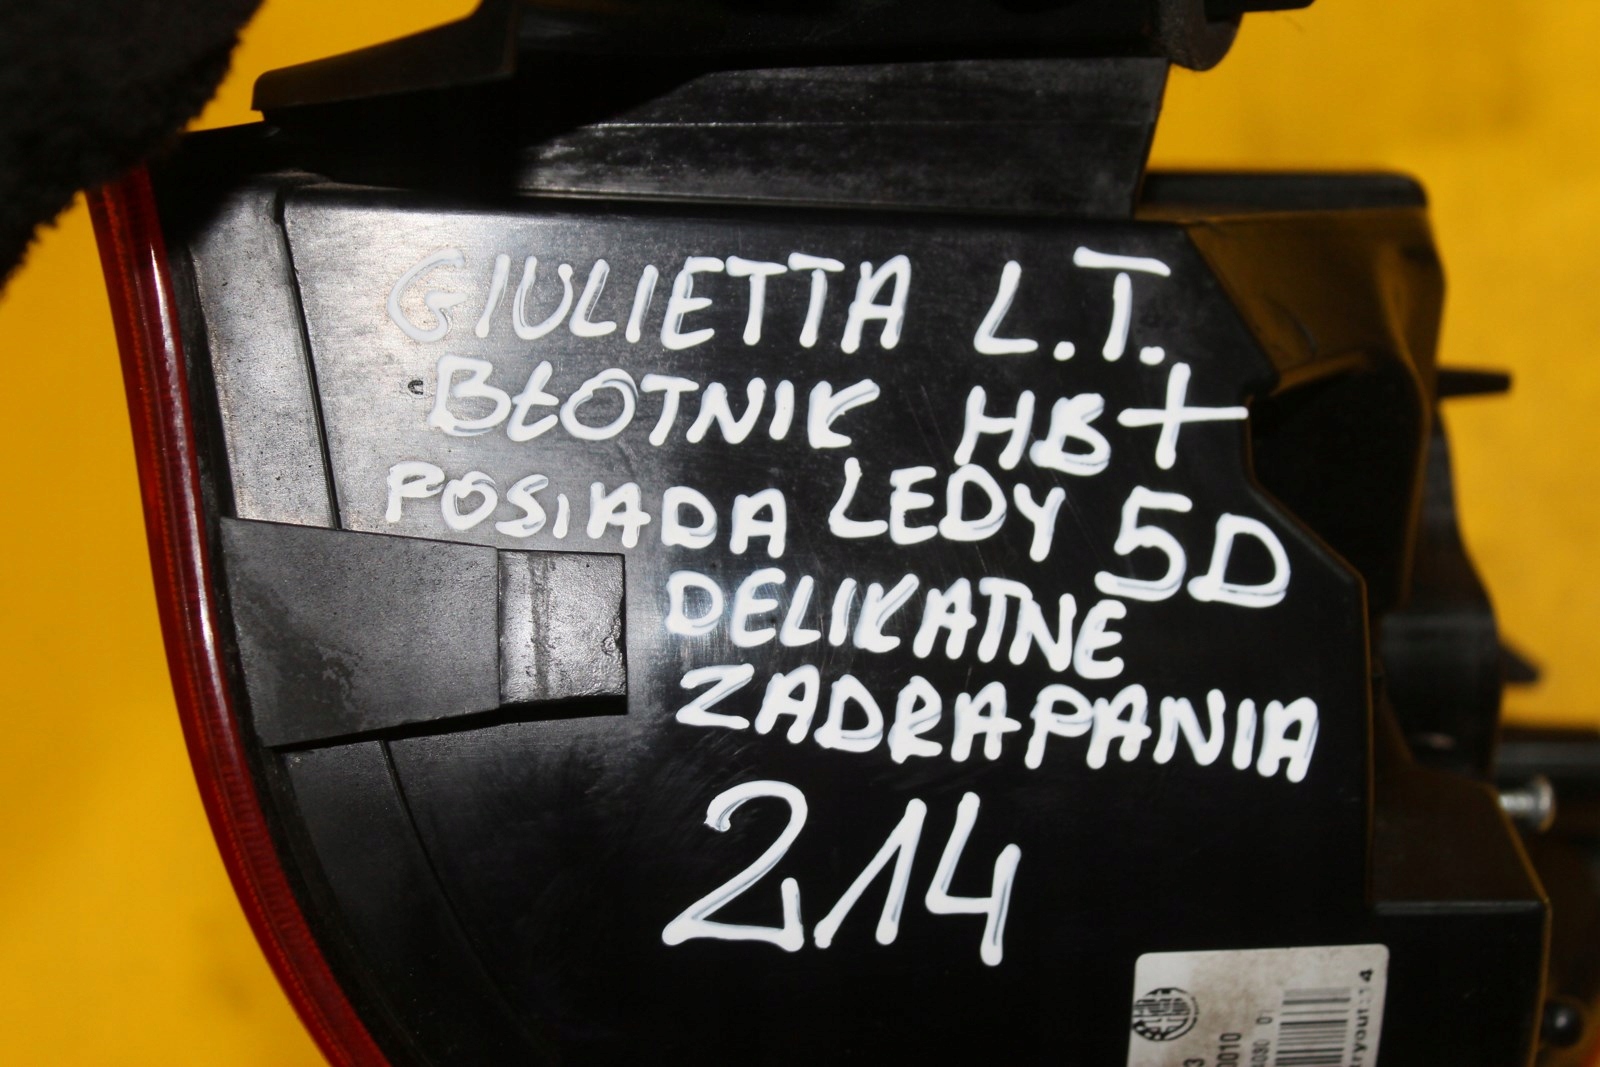 GIULIETTA L.T.
BŁOTNIK HB+
POSIADA LEDY 5D
DELIKATNE
ZADRAPANIA
214